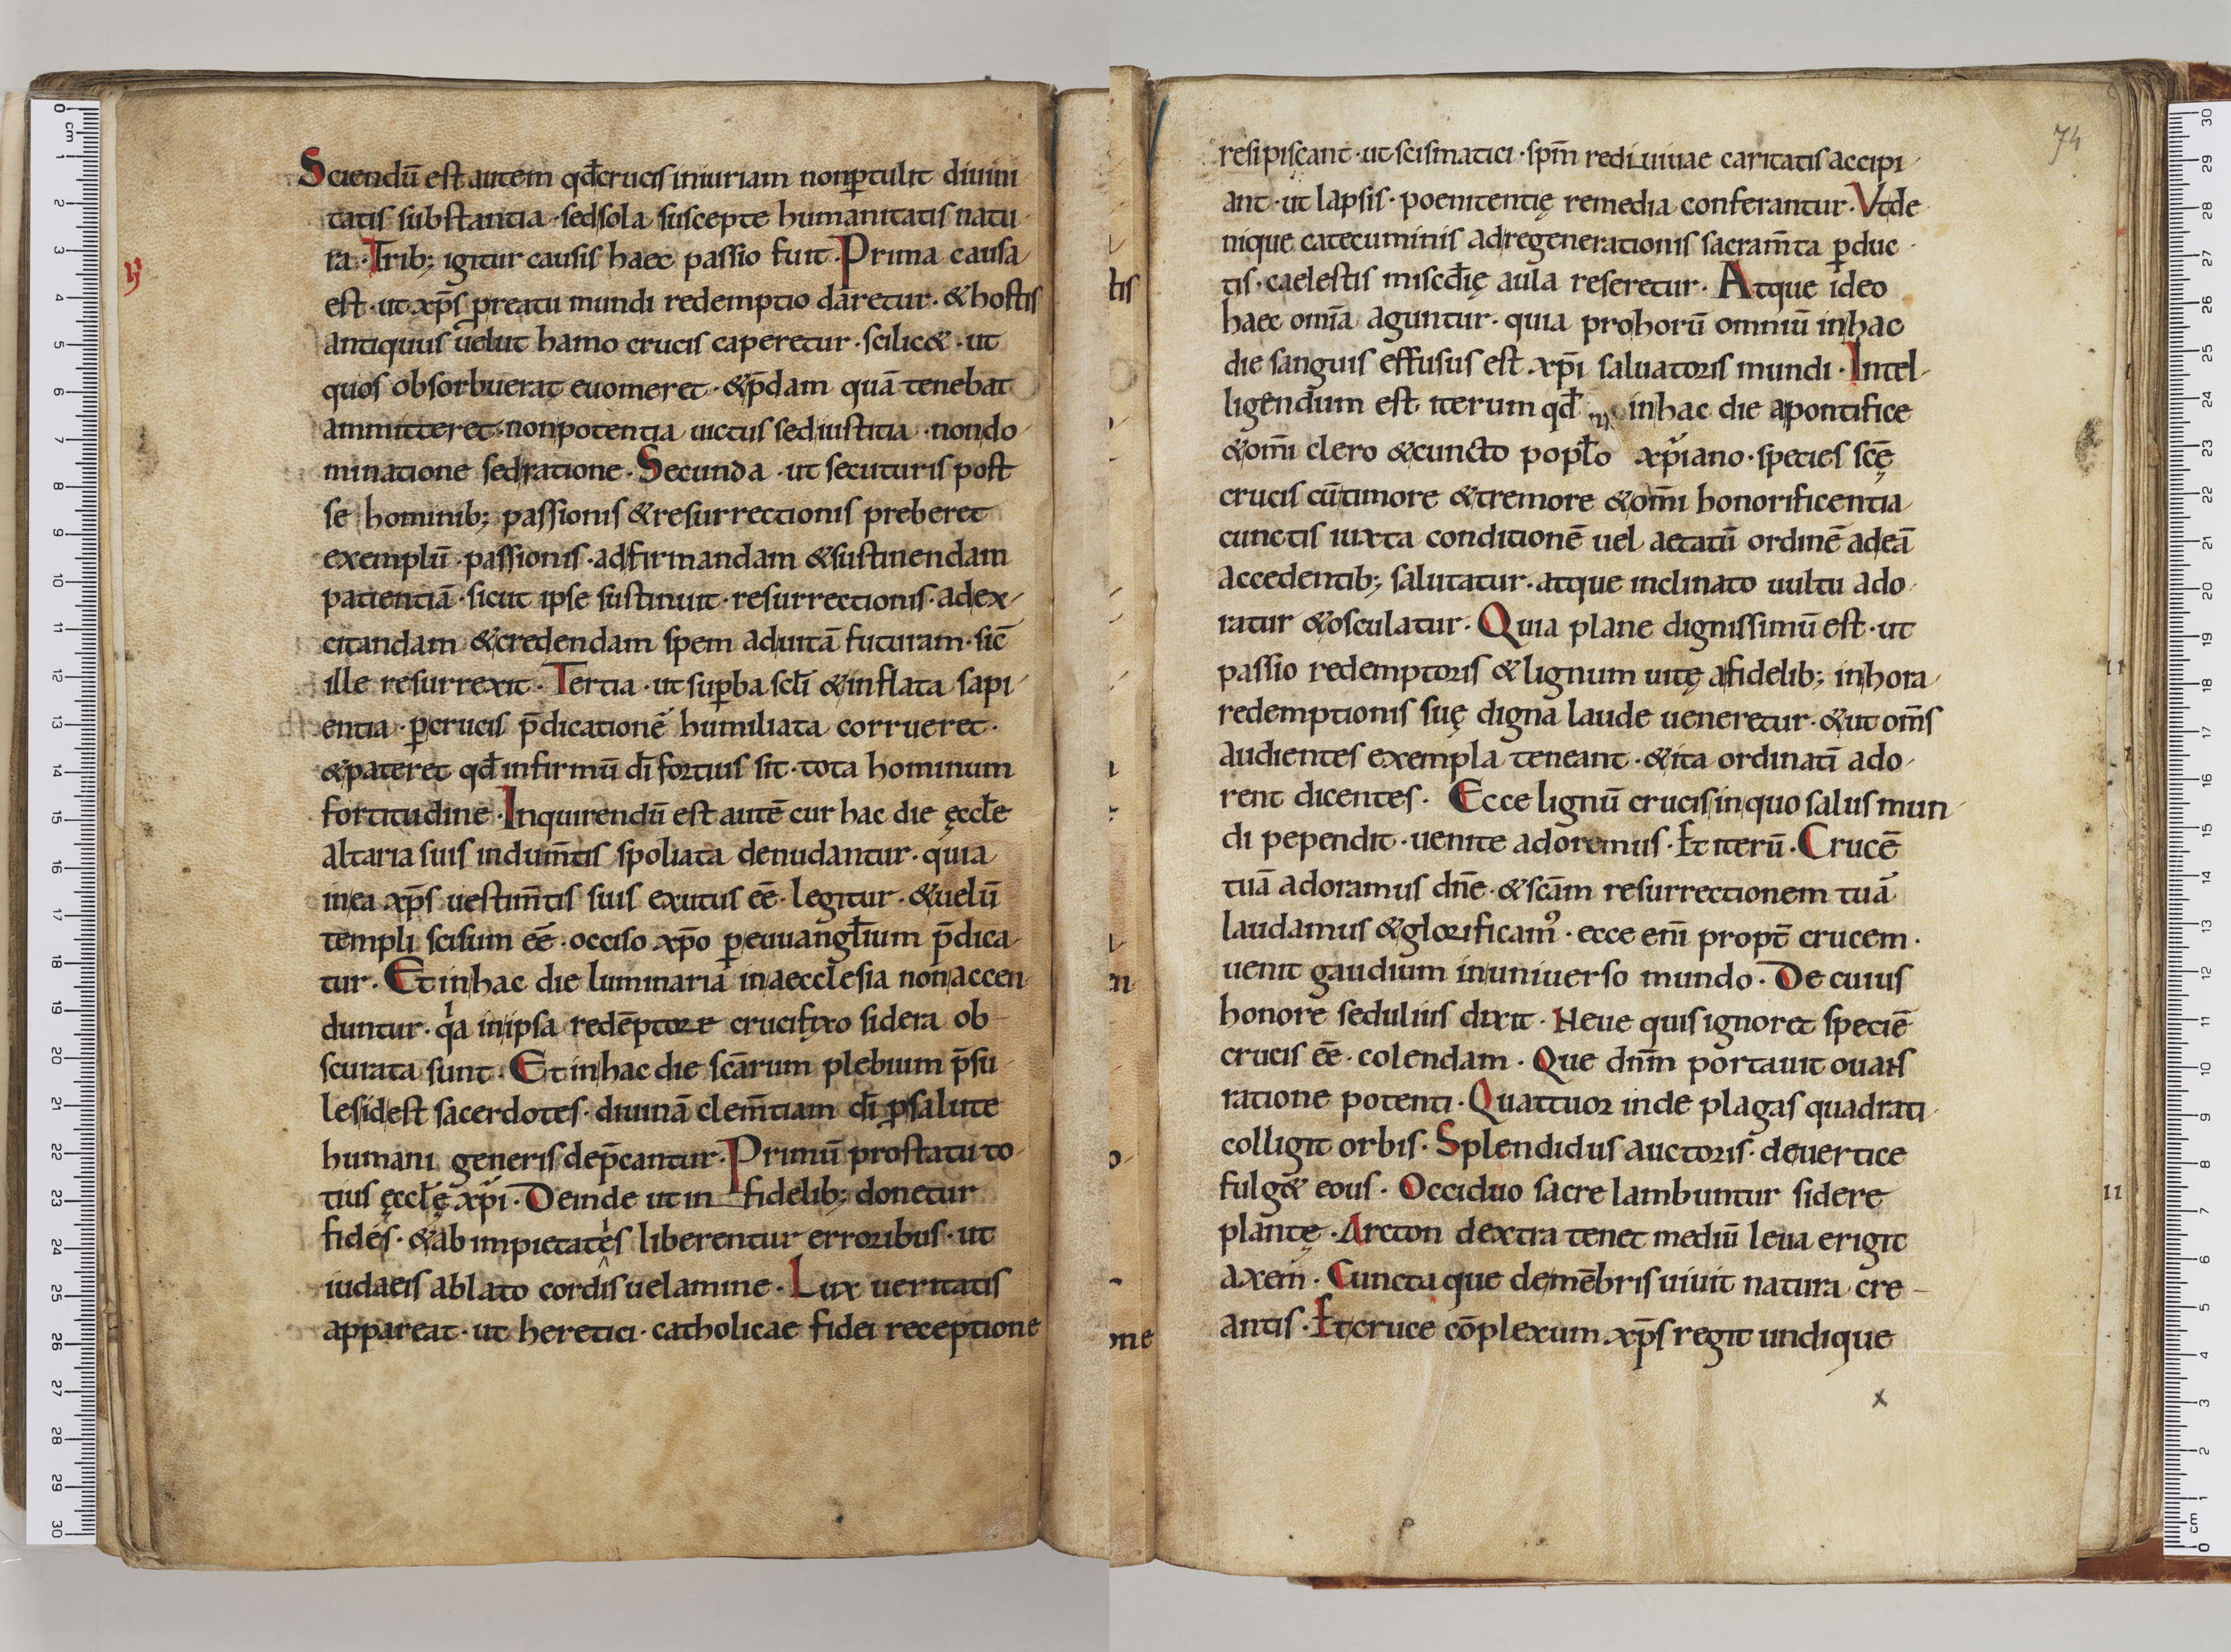 Sciendū est autem qđ crucis iniuriam non ꝑtulit diuini
tatis substantia · sed sola suscepte humanitatis natu
ra · Trib; igitur causis haec passio fuit · Prima causa
est · ut xp̄s p reatu mundi redemptio daretur · & hostis
antiquus uelut hamo crucis caperetur · scilic& · ut
quos obsorbuerat euomeret · & p̄dam quā tenebat
ammitteret · non potentia uictus sed iustitia · non do
minatione sed ratione · Secunda · ut secuturis post
se hominib; passionis & resurrectionis preberet
exemplū · passionis · ad firmandam & sustinendam
patientiā · sicut ipse sustinuit · resurrectionis · ad ex
citandam & credendam spem ad uitā futuram · sic̄
ille resurrexit · Tertia · ut suꝑba scłi & inflata sapi
entia · ꝑ crucis p̄dicationē humiliata corrueret ·
& pateret qđ infirmū dī fortius sit · tota hominum
fortitudine · Inquirendū est autē cur hac die ęccłe
altaria suis indum̄tis spoliata denudantur · quia
in ea xp̄s uestim̄tis suis exutus eē · legitur · & uelū
templi scisum eē · occiso xp̄o ꝑ euuangłium p̄dica
tur · Et in hac die luminaria in aecclesia non accen
duntur · qⁱa in ipsa redēptore crucifixo sidera ob
scurata sunt · Et in hac die scārum plebium p̄su
les id est sacerdotes · diuinā clem̄tiam dī ꝓ salute
humani generis dep̄cantur · Primū pro statu to
tius ęccłę xp̄i · Deinde ut in fidelib; donetur
fides · & ab impietatēs liberentur erroribus · ut
iudaeis ablato cordis uelamine · Lux ueritatis
appareat · ut heretici · catholicae fidei receptione
74
resipiscant · ut scismatici · spm̄ rediuiuae caritatis accipi
ant · ut lapsis · poenitentię remedia conferantur · Vt de
nique catecuminis ad regenerationis sacram̄ta ꝑduc
tis · caelestis miscđię aula reseretur · Atque ideo
haec omīa aguntur · quia pro horū omniū in hac
die sanguis effusus est xp̄i saluatoris mundi · Intel
ligendum est iterum qđ in hac die a pontifice
& omī clero & cuncto popło xp̄iano · species scę̄
crucis cū timore & tremore & omī honorificentia
cunctis iuxta conditionē uel aetatū ordinē ad eā
accedentib; salutatur · atque inclinato uultu ado
ratur & osculatur · Quia plane dignissimū est · ut
passio redemptoris & lignum uitę a fidelib; in hora
redemptionis suę digna laude ueneretur · & ut om̄s
audientes exempla teneant · & ita ordinatī ado
rent dicentes · Ecce lignū crucis in quo salus mun
di pependit · uenite adoremus · Et iterū · Crucē
tuā adoramus dn̄e · & scām resurrectionem tuā
laudamus & glorificamꝰ · ecce enī propt̄ crucem ·
uenit gaudium in uniuerso mundo · De cuius
honore sedulius dixit · Neue quis ignoret speciē
crucis eē · colendam · Que dnm̄ portauit ouans
ratione potenti · Quattuor inde plagas quadrati
colligit orbis · Splendidus auctoris · de uertice
fulg& eous · Occiduo sacre lambuntur sidere
plantę · Arcton dextra tenet mediū leua erigit
axem · Cuncta que de mēbris uiuit natura cre
antis · Et cruce cōplexum xp̄s regit undique